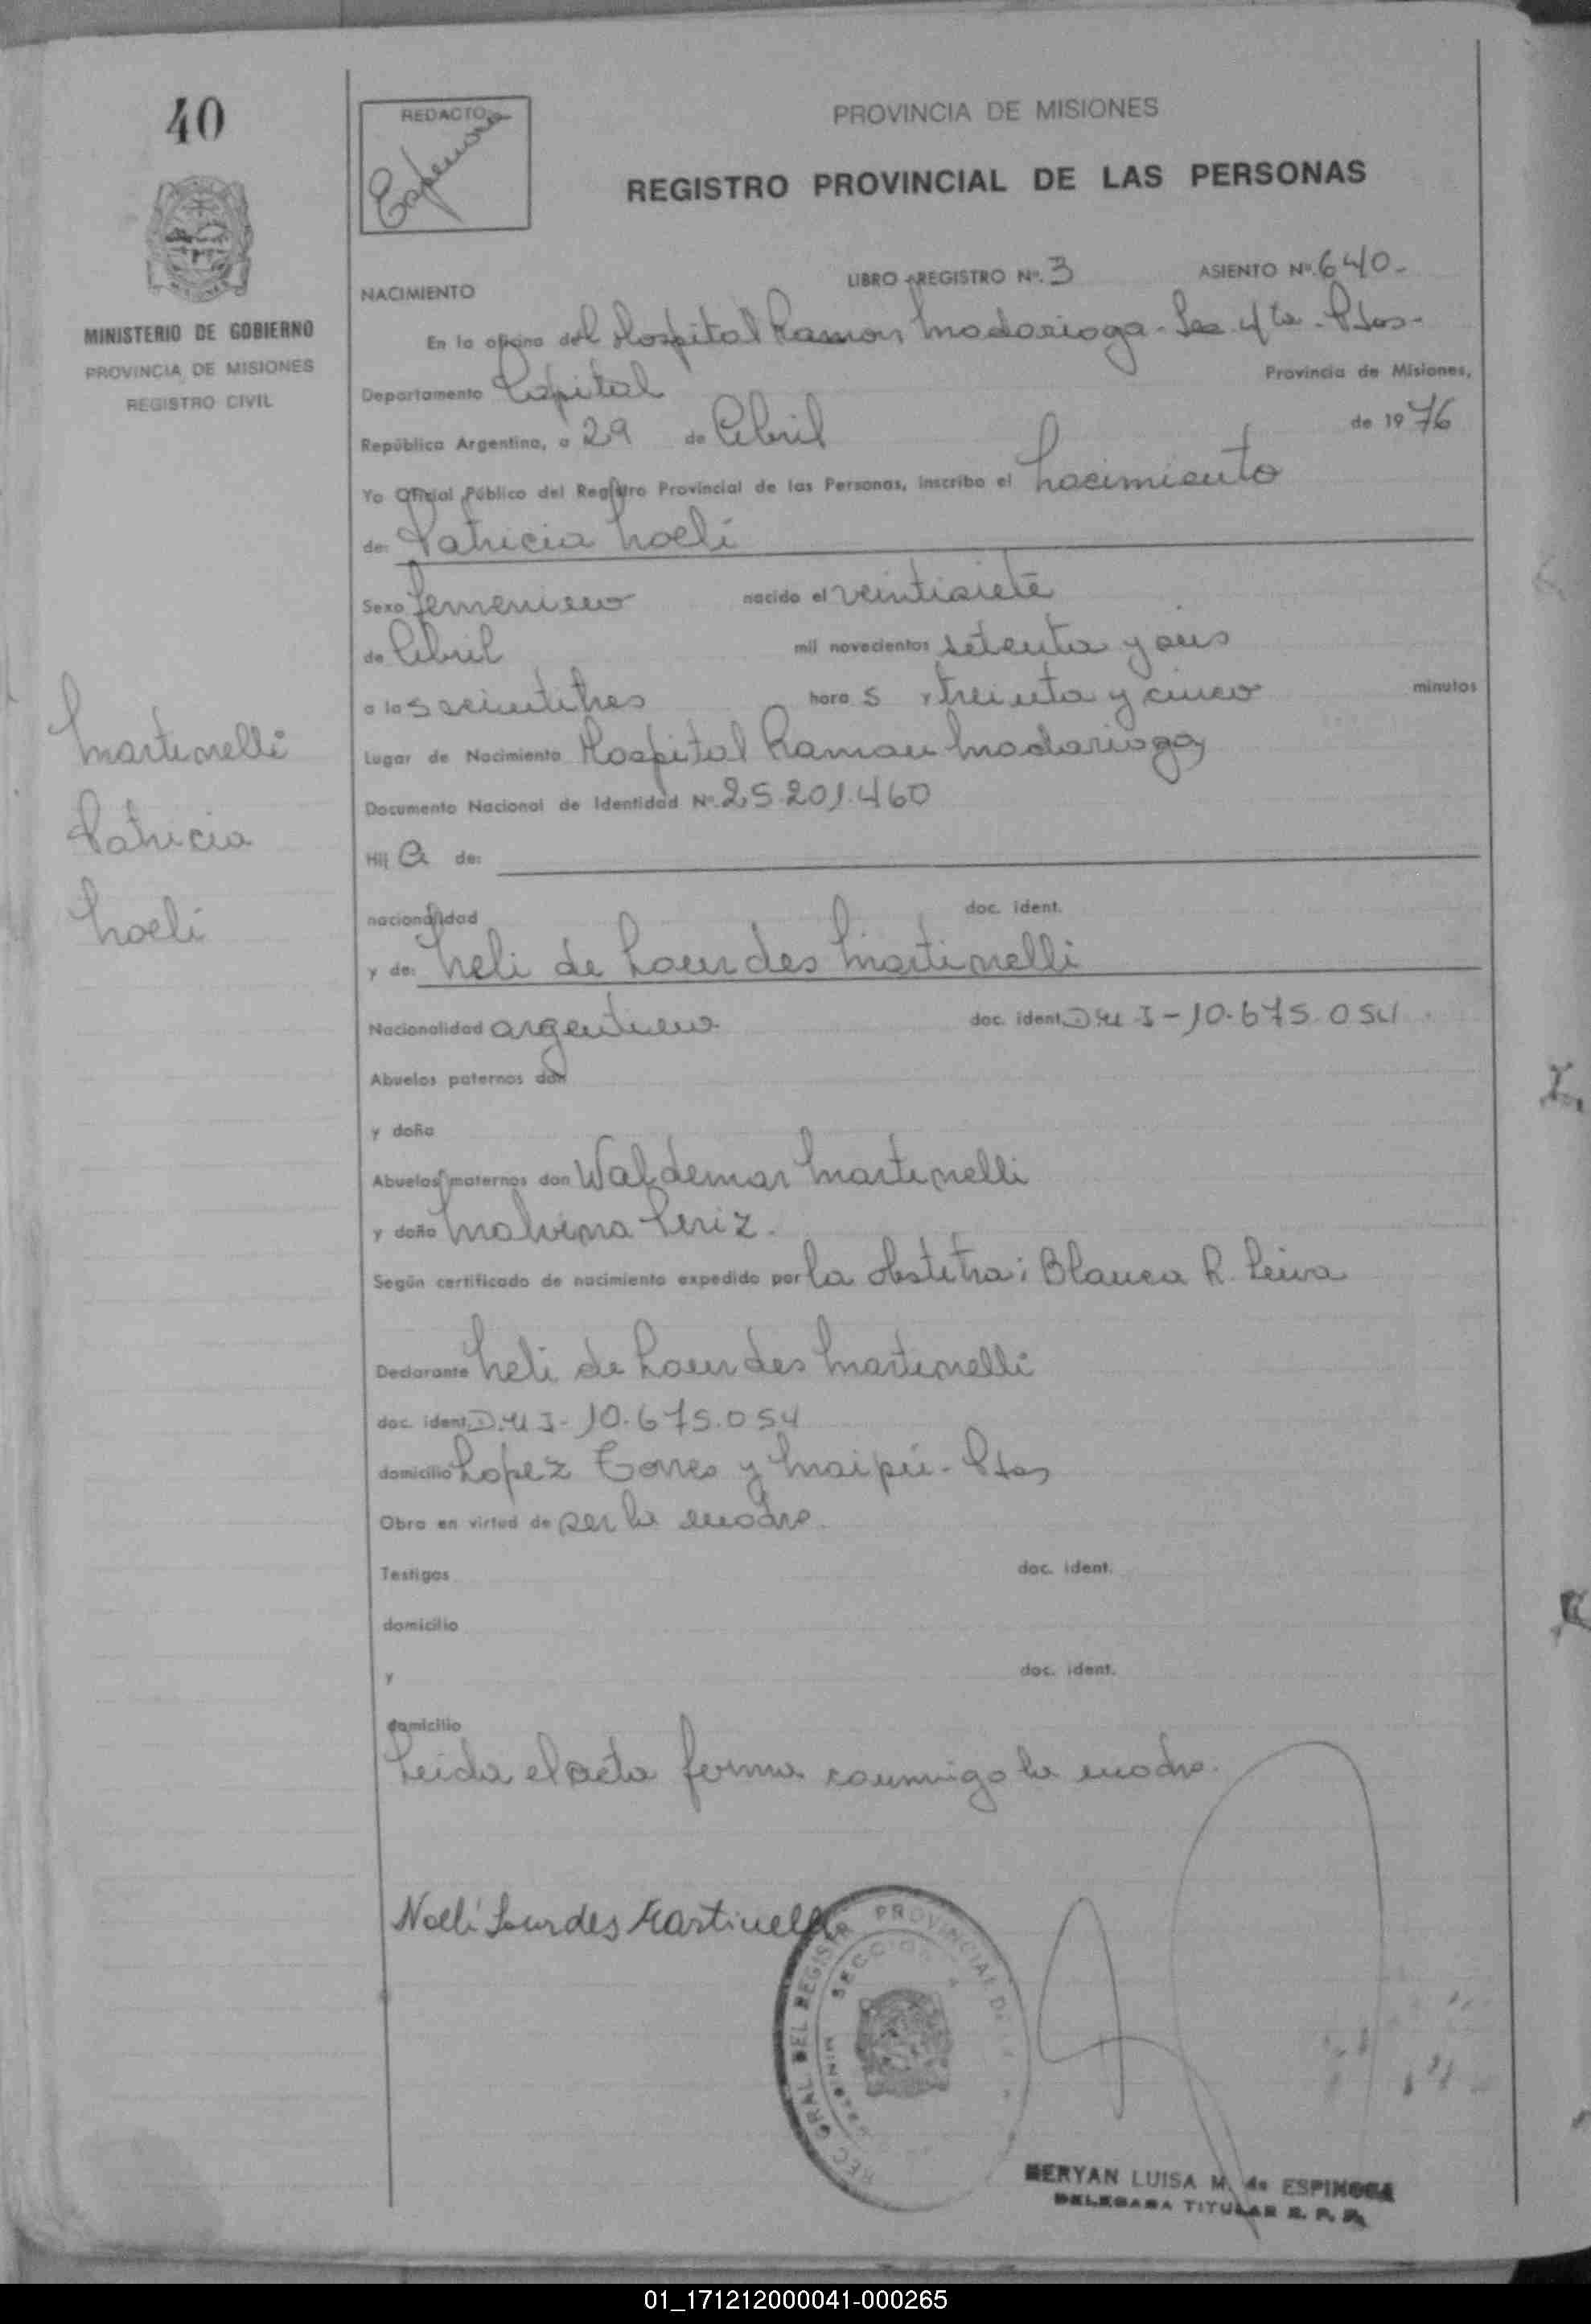 40
REDACTOR
Espinosa
PROVINCIA DE MISIONES
REGISTRO PROVINCIAL DE LAS PERSONAS
MINISTERIO DE GOBIERNO
PROVINCIA DE MISIONES
REGISTRO CIVIL
NACIMIENTO
LIBRO - REGISTRO Nº. 3 ASIENTO Nº. 640-
En la oficina del Hospital Ramon Madariaga - Sec. 4ta - Pdas-
Departamento Capital Provincia de Misiones,
República Argentina, a 29 de Abril de 1976
Yo Oficial Público del Registro Provincial de las Personas, inscribo el Nacimiento
de: Patricia Noeli
Sexo femenino nacido el veintisiete
de Abril mil novecientos setenta y seis
a las veintitres horas y treinta y cinco minutos
Lugar de Nacimiento Hospital Ramon Madariaga
Documento Nacional de Identidad Nº. 25.201.460
Hija de:
nacionalidad doc. ident.
y de: Neli de Lourdes Martinelli
Nacionalidad argentina doc. ident. D.N.I-10.675.054
Abuelos paternos don
y doña
Abuelos maternos don Waldemar Martinelli
y doña Malvina
Según certificado de nacimiento expedido por la obstetra: Blanca R. Leiva
Declarante Neli de Lourdes Martinelli
doc. ident. D.N.I- 10.675.054
domicilio Lopez Torres y Maipú - Pdas
Obra en virtud de ser la madre.
Testigos doc. ident.
domicilio
y doc. ident.
domicilio
Leida el acta firma conmigo la madre.
Martinelli
Patricia
Noeli
Noelí Lourdes Martinelli
GRAL DEL REGISTR PROVINCIAL DE
SECCION
MERYAN LUISA M. de ESPINOSA
DELEGADA TITULAR R. P. P.
01_171212000041-000265